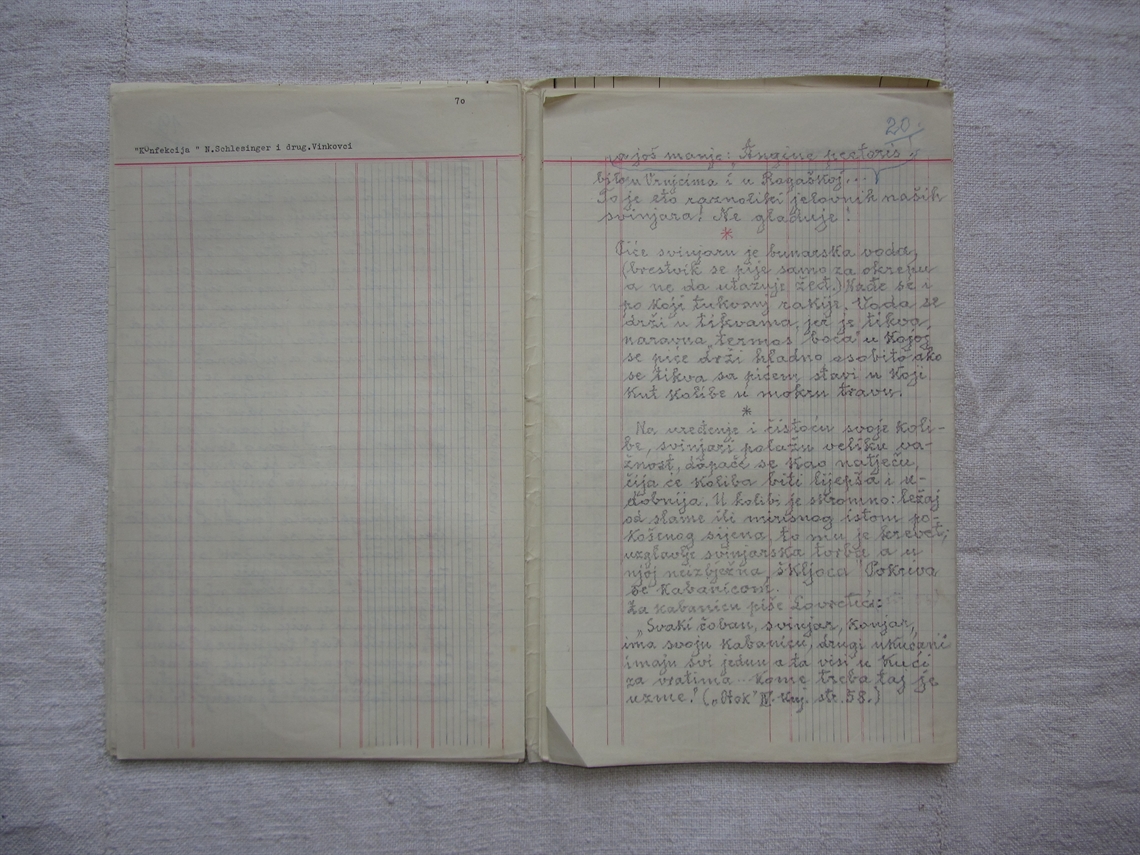 7o
"KOnfekcija " N.Schlesinger i drug.Vinkovci
20.
a još manje: "Angine pectoris",
bilo u Vrnjcima i u Rogaškoj...
To je eto raznoliki jelovnik naših
svinjara! Ne gladuje!
*
Piće svinjaru je bunarska voda,
(brestvik se pije samo za okrepu
a ne da utažuje žeđ.) Nađe se i
po koji tukvanj rakije. Voda se
drži u tikvama, jer je tikva,
naravna "termos boca" u kojoj
se piće drži hladno osobito ako
se tikva sa pićem stavi u koji
kut kolibe u mokru travu.
*
Na uređenje i čistoću svoje koli-
be, svinjari polažu veliku va-
žnost, dapače se kao natječu,
čija će koliba biti ljepša i u-
dobnija. U kolibi je skromno: ležaj
od slame ili mirisnog istom po-
košenog sijena, to mu je krevet;
uzglavlje svinjarska torba a u
njoj neizbježna "škljoca". Pokriva
se kabanicom.
Za kabanicu piše Lovretić:
"Svaki čoban, svinjar, konjar,
ima svoju kabanicu, drugi ukućani
imaju svi jednu a ta visi u kući
za vratima... kome treba taj je
uzme." ("Otok" IV. knj. str. 58.)